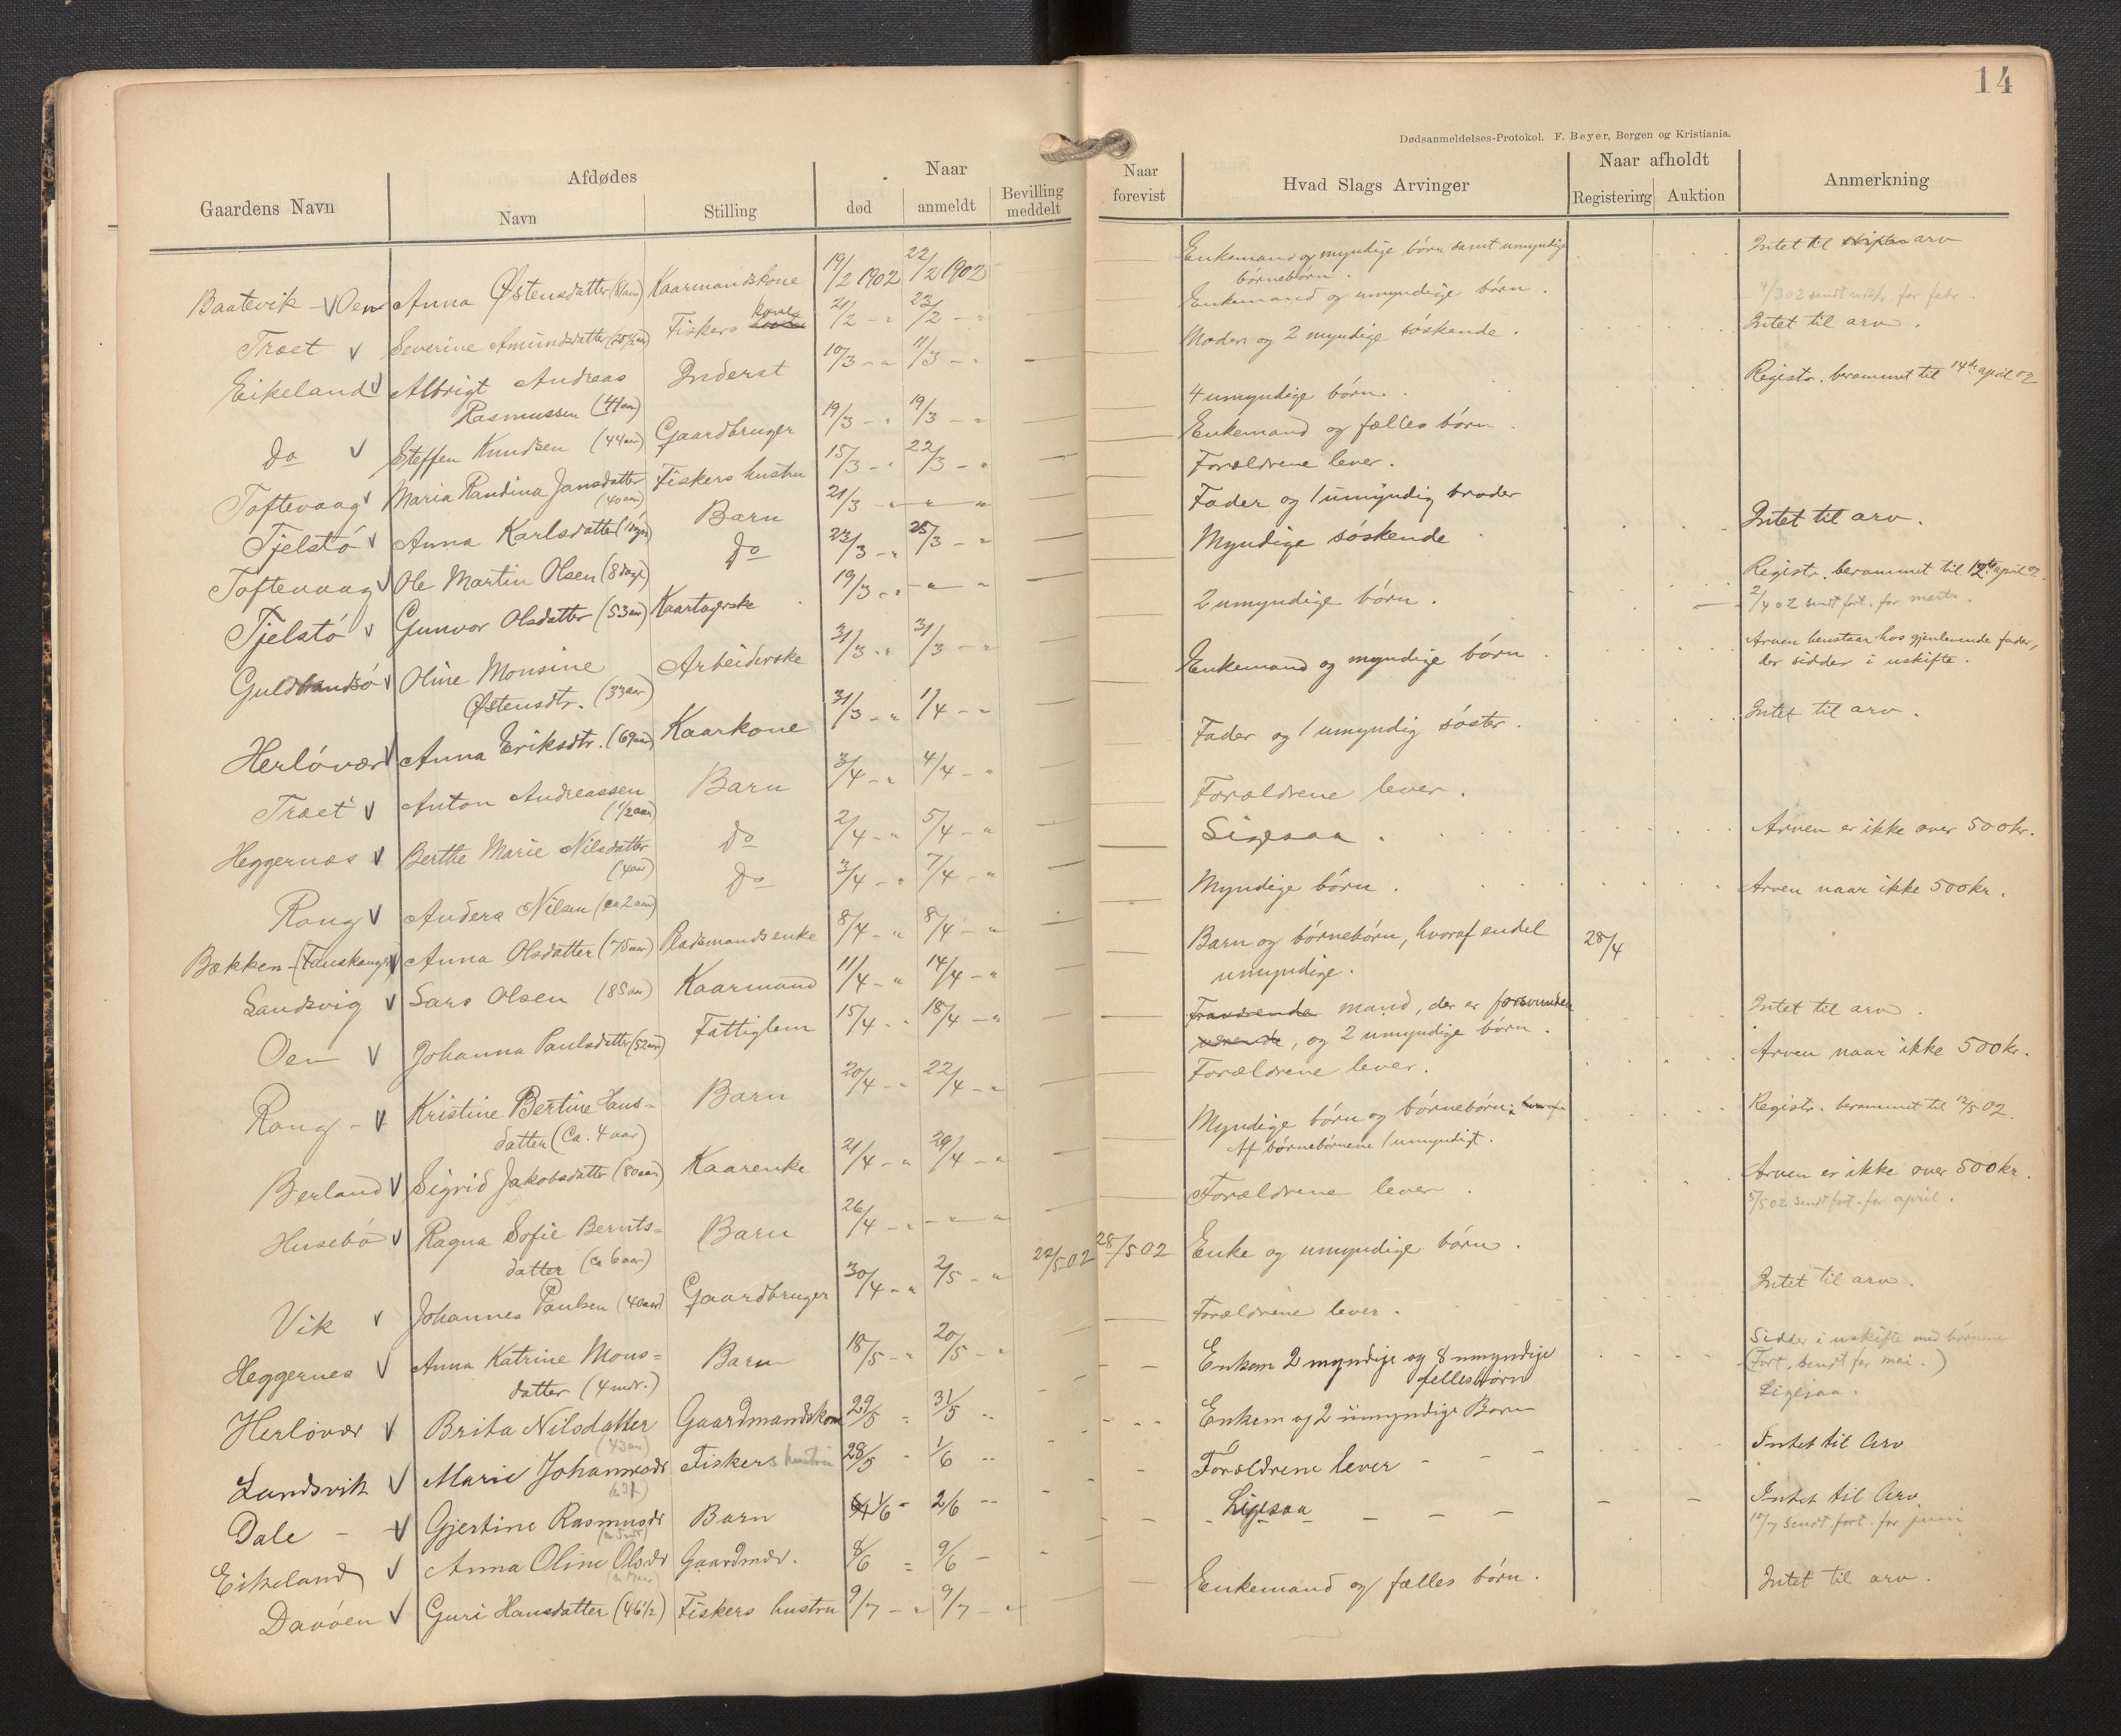 14
Dødsanmeldelses-Protokol. F. Beyer, Bergen og Kristiania.
Gaardens Navn
Afdødes
Navn
Stilling
Naar
død
anmeldt
Bevilling meddelt
Naar forevist
Hvad Slags Arvinger
Naar afholdt
Registering
Auktion
Anmerkning
Baatevik - Oen Anna Østensdatter Kaarmandskone 19/2 1902 22/2 1902
Træet Severine Amundsdatter Fiskers kone 21/2 - " 23/2 - "
Eikeland Albrigt Andreas Inderst 10/3 - " 11/3 - "
Rasmussen (41 aar)
do Steffen Knudsen (44 aar) Gaardbruger 19/3 - " 19/3 - "
Toftevaag Maria Randina Jansdatter Fiskers hustru 15/3 - " 22/3 - "
(40 aar)
Tjelstø Anna Karlsdatter Barn 21/3 - " - "
Toftevaag Ole Martin Olsen (8 dage) do 23/3 - " 25/3 - "
Tjelstø Gunvor Olsdatter (53 aar) Kaartagerske 19/3 - " - "
Oline Monsine Arbeiderske 31/3 - " 31/3 - "
Østensdtr. (33 aar)
Herløvær Anna Eriksdtr. (69 aar) Kaarkone 31/3 - " 1/4 - "
Træet Anton Andreassen Barn 3/4 - " 4/4 - "
(1/2 aar)
Heggernæs Berthe Marie Nilsdatter do 2/4 - " 5/4 - "
(4 aar)
Rong Anders Nilsen (ca 2 aar) do 3/4 - " 7/4 - "
Bakken - (Fauskanger) Anna Olsdatter (75 aar) Pladsmandsenke 8/4 - " 8/4 - "
Landsvig Lars Olsen (85 aar) Kaarmand 11/4 - " 14/4 - "
Oen Johanna Paulsdatter (52 aar) Fattiglem 15/4 - " 18/4 - "
Rong - Kristine Bertine Hans- Barn 20/4 - " 22/4 - "
datter (Ca. 4 aar)
Berland Sigrid Jakobsdatter (80 aar) Kaarenke 21/4 - " 29/4 - "
Husebø Ragna Sofie Bernts- Barn 26/4 - " - "
datter (ca 6 aar)
Vik Johannes Paulsen (40 aar) Gaardbruger 30/4 - " 2/5 - " 22/5 02
Heggernes Anna Katrine Mons- Barn 18/5 - " 20/5 - "
datter (4 mdr.)
Herløvær Brita Nilsdatter Gaardmandskone 29/5 " 31/5 "
Landsvik Marie Johannesdr Fiskers hustru 28/5 " 1/6 "
Dale - Gjertine Rasmusdr Barn 1/6 - 2/6 --
Eikeland Anna Oline Olsdr Gaardmdr. 8/6 = 9/6 -
Davøen Guri Hansdatter (46 1/2) Fiskers hustru 9/7 - " 9/7 - "
Enkemand og myndige børn samt umyndige Intet til skiftes arv
børnebørn.
Enkemand og umyndige børn. 4/3 02 sendt for febr.
Moder og 2 myndige søskende. Intet til arv.
4 umyndige børn. Registr. berammet til 14de april 02
Enkemand og fælles børn.
Forældrene lever.
Fader og 1 umyndig broder
Myndige søskende Intet til arv.
2 umyndige børn. Registr. berammet til 12te april 02.
2/4 02 sendt fort. for marts.
Enkemand og myndige børn Arven henstaar hos gjenlevende fader,
der sidder i uskifte.
Fader og 1 umyndig søster. Intet til arv.
Forældrene lever.
Ligesaa. Arven er ikke over 500 kr.
Myndige børn. Arven naar ikke 500 kr.
Barn og børnebørn, hvoraf endel 28/4
umyndige.
Fraværende mand, der er forsvunden Intet til arv.
værende, og 2 umyndige børn.
Forældrene lever. Arven naar ikke 500 kr.
Myndige børn og børnebørn; hvoraf Registr. berammet til 12/5 02.
Af børnebørnene 1 umyndigt.
Forældrene lever Arven er ikke over 500 kr.
5/5 02 sendt fort. for april.
28/5 02 Enke og umyndige børn.
Forældrene lever. Intet til arv.
Enkem 2 myndige og 8 umyndige Sidder i uskifte med børnene
fellesbørn (Fort. sendt for mai.)
Enkem og 2 umyndige Børn Ligesaa.
Forældrene lever - - Intet til Arv
Ligesaa - - - Intet til Arv
10/7 sendt fort. for juni
Enkemand og fælles børn. Intet til arv.